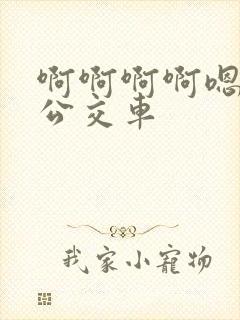 啊啊啊啊嗯
公交车
我家小宠物